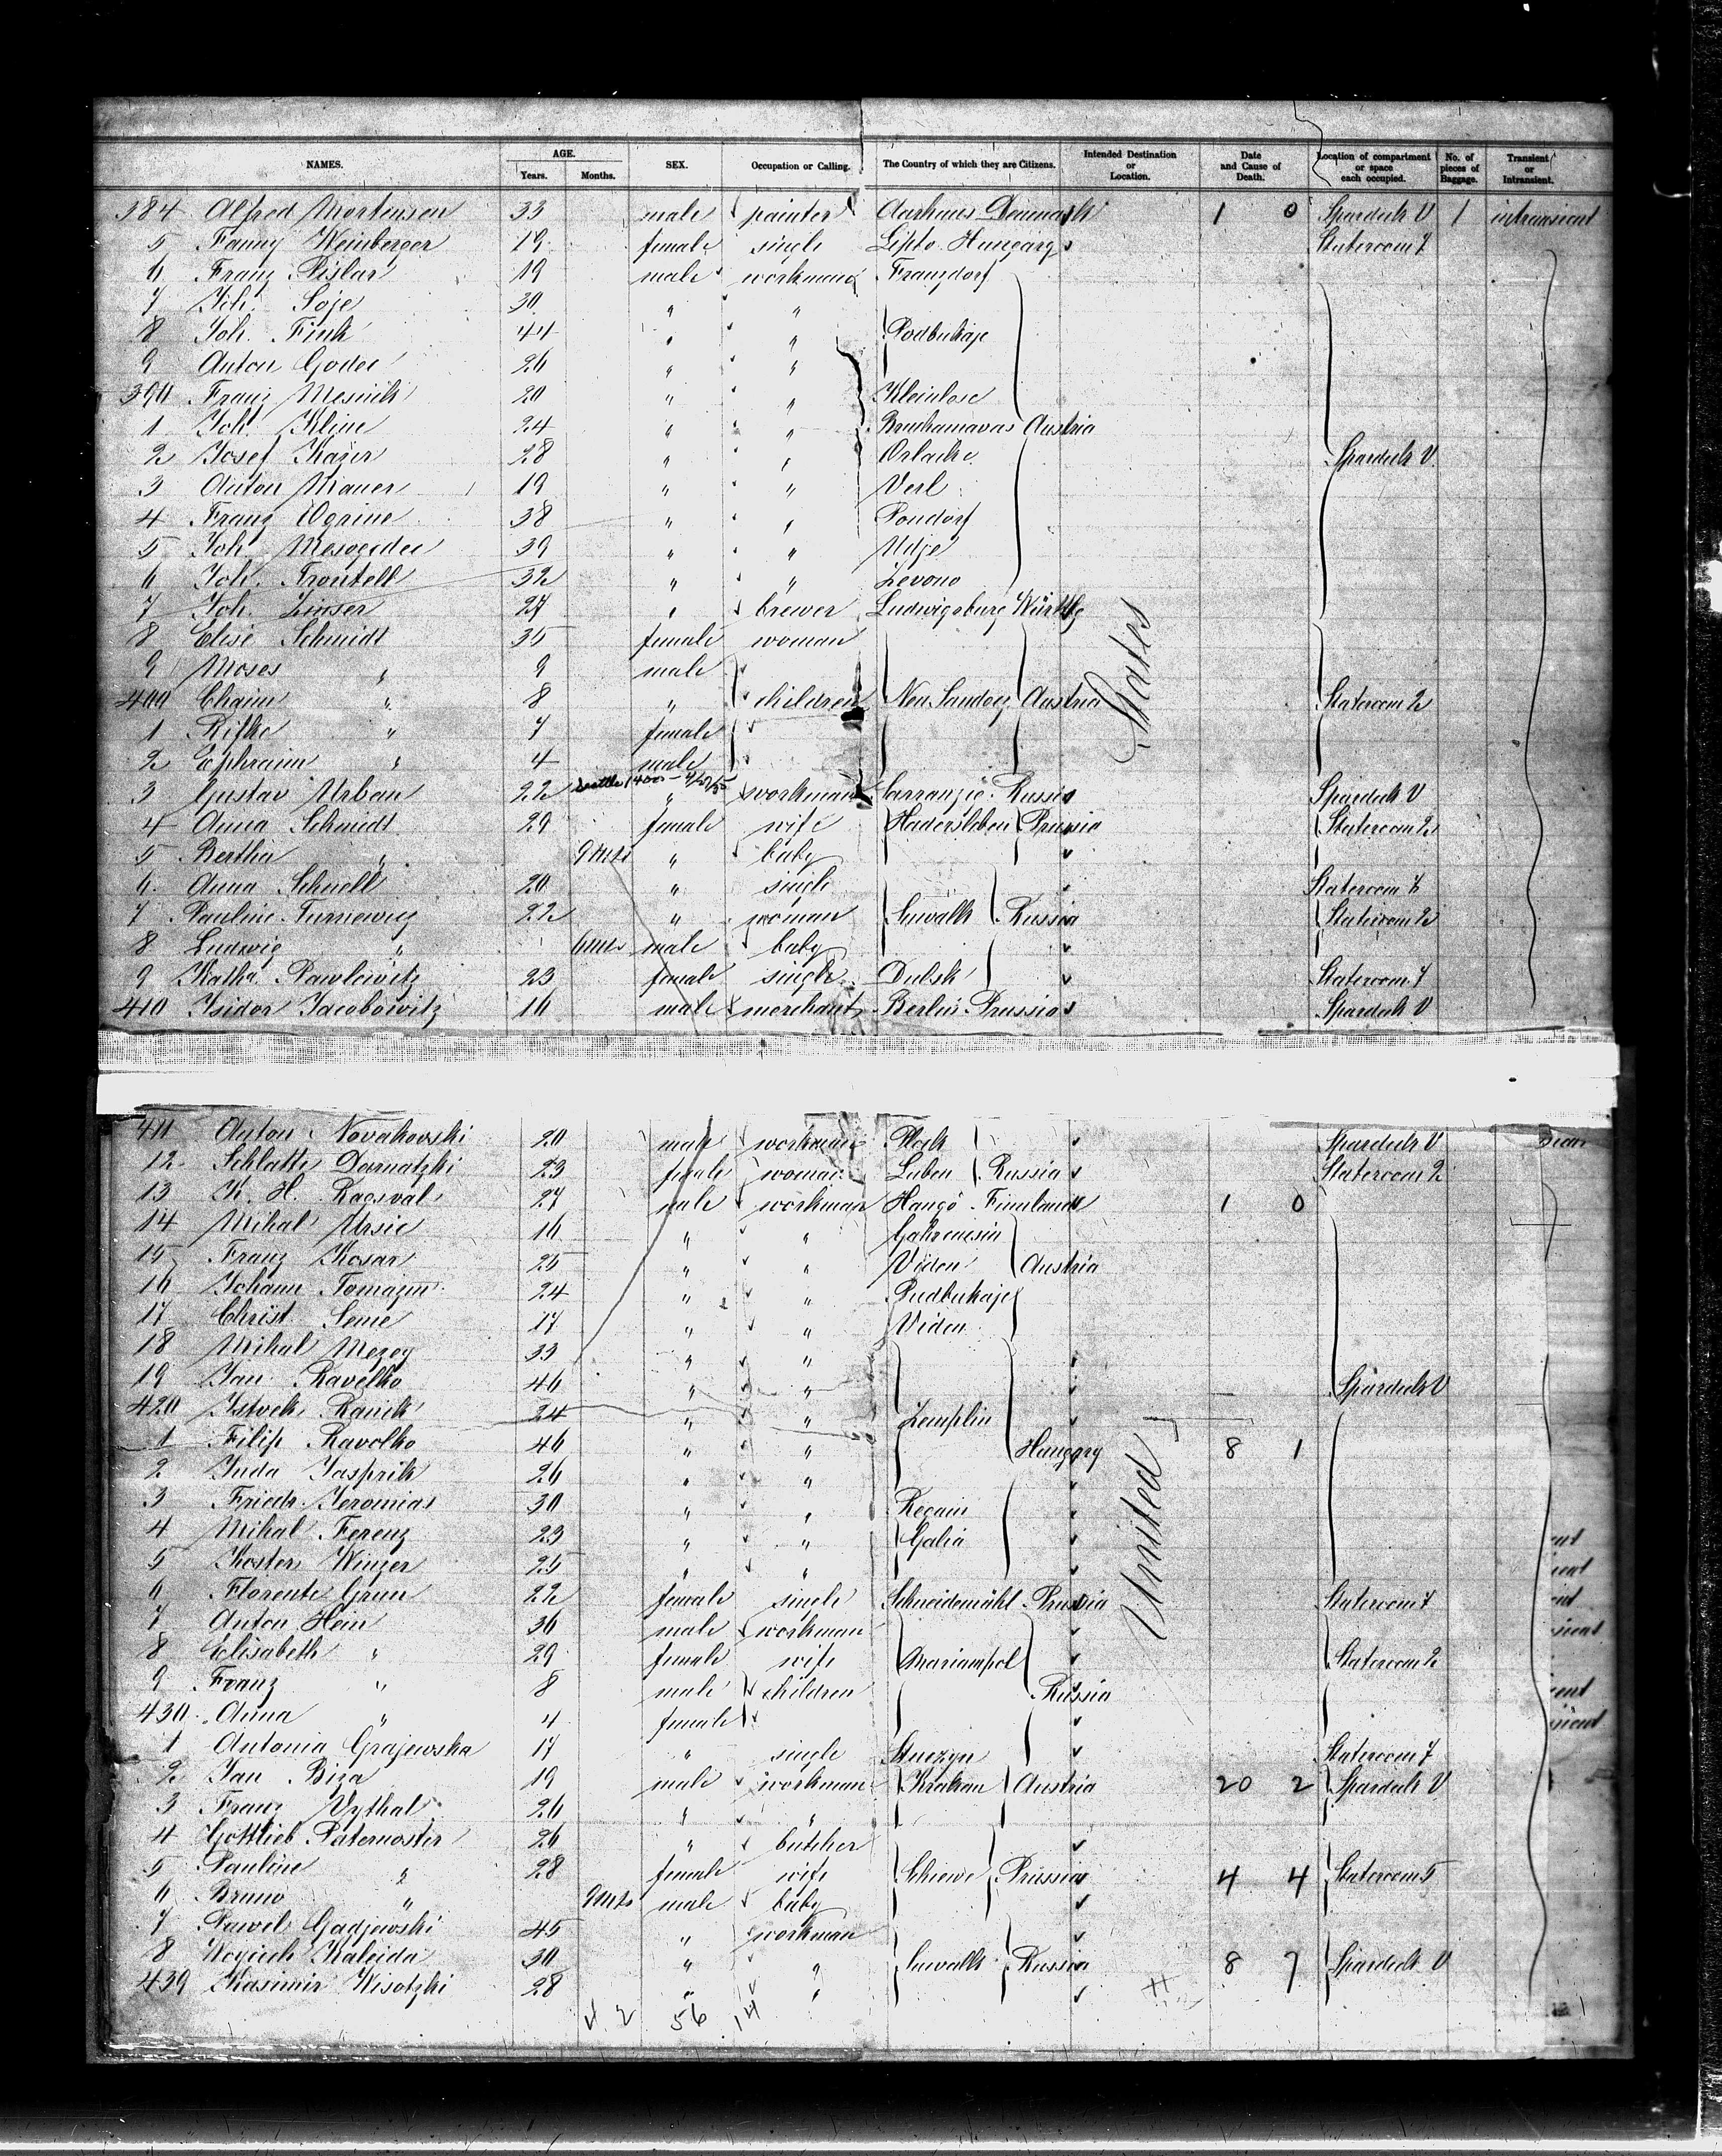 NAMES. AGE. Years. Months. SEX. Occupation or Calling. The Country of which they are Citizens. Intended Destination or Location. Date and Cause of Death. Location of compartment or space each occupied. No. of pieces of Baggage. Transient or Intransient.
384 Alfred Mortensen 33 male painter Aarhuus Denmark 1 0 Spardeck V 1 intransient
5 Fanny Weinberger 19 female single Lipto Hungary Stateroom 7
6 Franz Pislar 19 male workman Franzdorf
7 Joh. Soje 30 " "
8 Joh. Fink 44 " " Podbukaje
9 Anton Godec 26 " "
390 Franz Mesnik 20 " " Kleinlose
1 Joh. Kline 24 " " Austria
2 Josef 28 " " Spardeck V
3 Anton Mauer 19 " " Verl
4 Franz Ogrine 38 " " Pondorf
5 Joh. 39 " " Udje
6 Joh. Trontell 32 " "
7 Joh. Zinser 27 " brewer Ludwigsburg Württbg
8 Elise Schmidt 35 female woman
9 Moses " 9 male
400 Chaim " 8 " children Neu Sandec Austria Stateroom 2
1 Rifke " 7 female
2 Ephraim " 4 male
3 Gustav Urban 22 " workman Russia Spardeck V
4 Anna Schmidt 29 female wife Hadersleben Prussia Stateroom 2
5 Bertha " 9 mts " baby
6 Anna Schnell 20 " single Stateroom 7
7 Pauline 22 " woman Suwalk Russia Stateroom 2
8 Ludwig " 6 mts male baby
9 Kath. Pawlowitz 23 female single Dubsk Stateroom 7
410 Isidor Jacobowitz 16 male merchant Berlin Prussia Spardeck V
States
411 Anton Novakovski 20 male workman Plock Spardeck V
12 Schlatte Darnatzki 23 female woman Luben Russia Stateroom 2
13 K. H. 27 male workman Hangö Finnland 1 0
14 Mihal Ursic 16 " "
15 Franz Kosar 25 " " Viden Austria
16 Johann Tomazin 24 " " Pudbukaje
17 Christ. Seme 17 " " Viden
18 Mihal Mezey 33 " "
19 Jan Ravelko 46 " " Spardeck V
420 Istvek Ranik 24 " " Zemplin
1 Filip Ravolko 46 " " Hungary 8 1
2 Juda Jasprik 26 " "
3 Friedr. Jeromias 30 " "
4 Mihal Ferenz 23 " " Galia
5 Koster Winzer 25 " "
6 Florente Grun 22 female single Schneidemühl Prussia Stateroom 7
7 Anton Hein 36 male workman
8 Elisabeth " 29 female wife Mariampol Stateroom 2
9 Franz " 8 male children Russia
430 Anna " 4 female
1 Antonia Grajewska 17 " single Stateroom 7
2 Jan Biza 19 male workman Krakau Austria 20 2 Spardeck V
3 Franz Vythal 26 " "
4 Gottlieb Paternoster 26 " butcher
5 Pauline " 28 female wife Prussia 4 4 Stateroom 5
6 Bruno " 9 mts male baby
7 Pawel Gadjewski 45 " workman
8 Woyciech Kaleida 30 " " Suwalk Russia 8 7 Spardeck V
439 Kasimir Wisotzki 28 " "
2 56 14
United